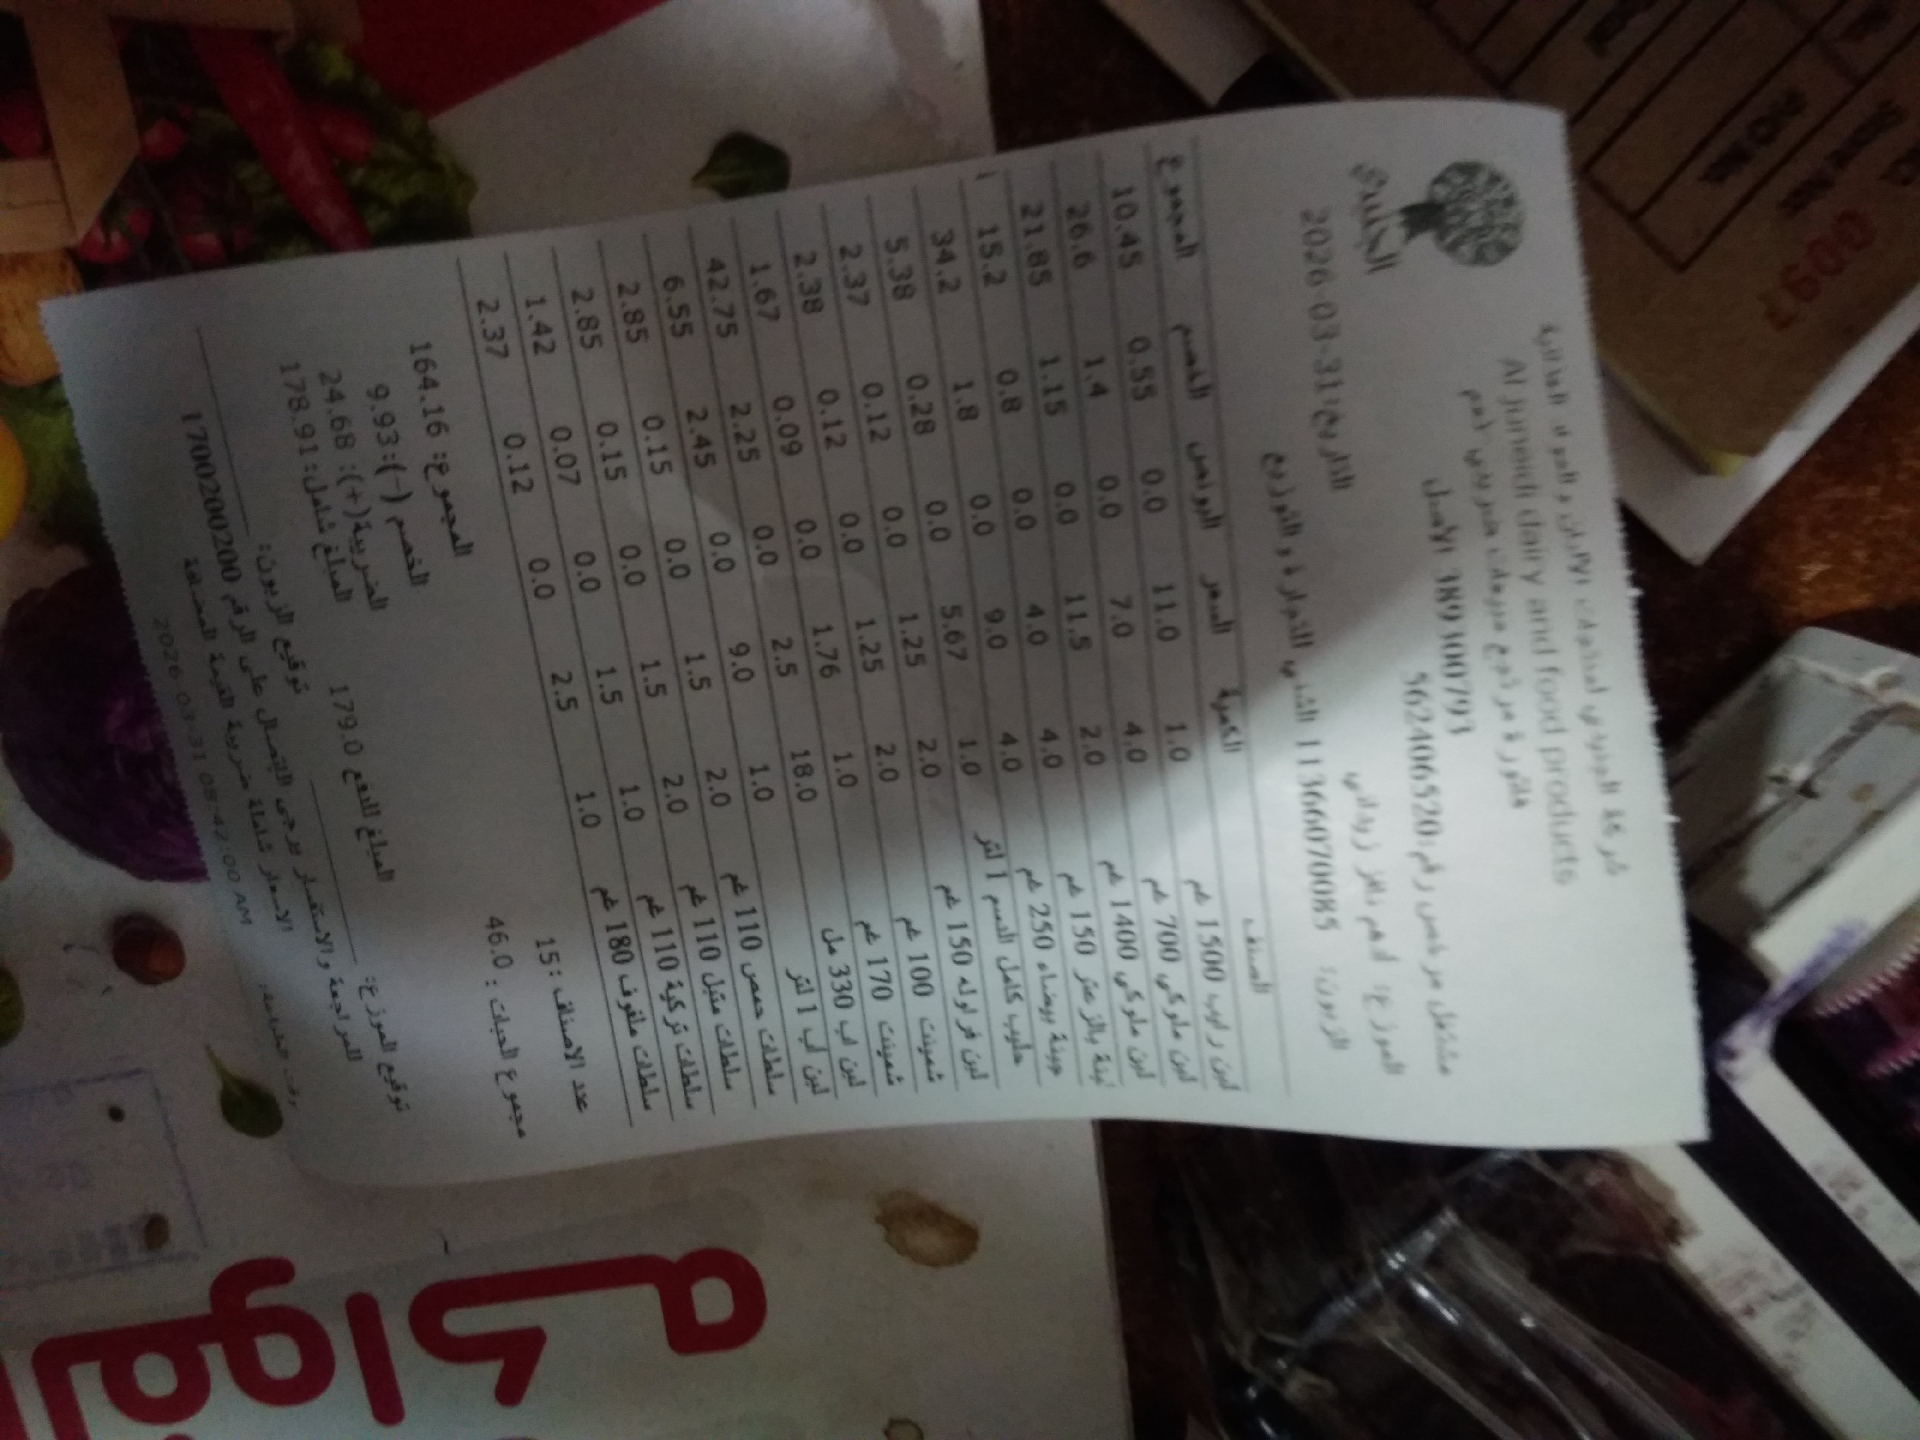 شركة الجنيدي لمنتجات الألبان و المواد الغذائية
Al juneidi dairy and food products
فاتورة مرتجع مبيعات ضريبي
مشتغل مرخص رقم: 562406520
389300793 الأصل
الجنيدي
الموزع: ادهم
التاريخ: 31-03-2026
الزبون: 1136607008S و التوزيع
الصنف الكمية السعر البونص الخصم المجموع
لبن رايب 1500 غم 1.0 11.0 0.0 0.55 10.45
لبن ملوكي 700 غم 4.0 7.0 0.0 1.4 26.6
لبن ملوكي 1400 غم 2.0 11.5 0.0 1.15 21.85
لبنة بالزعتر 150 غم 4.0 4.0 0.0 0.8 15.2
جبنة بيضاء 250 غم 4.0 9.0 0.0 1.8 34.2
حليب كامل الدسم 1 لتر 1.0 5.67 0.0 0.28 5.38
لبن فراوله 150 غم 2.0 1.25 0.0 0.12 2.37
شمينت 100 غم 2.0 1.25 0.0 0.12 2.38
شمينت 170 غم 1.0 1.76 0.0 0.09 1.67
لبن اب 330 مل 18.0 2.5 0.0 2.25 42.75
لبن اب 1 لتر 1.0 9.0 0.0 2.45 6.55
سلطات حمص 110 غم 2.0 1.5 0.0 0.15 2.85
سلطات متبل 110 غم 2.0 1.5 0.0 0.15 2.85
سلطات تركية 110 غم 1.0 1.5 0.0 0.07 1.42
سلطات ملفوف 180 غم 1.0 2.5 0.0 0.12 2.37
عدد الاصناف :15
مجموع الحبات : 46.0
المجموع: 164.16
الخصم (-): 9.93
الضريبة(+): 24.68
المبلغ شامل: 178.91
المبلغ للدفع 179.0
توقيع الموزع:
توقيع الزبون:
للمراجعة و الاستفسار يرجى الاتصال على الرقم 1700200200
الاسعار شاملة ضريبة القيمة المضافة
2026-03-31 08:42:00 AM
الفواكه
0097